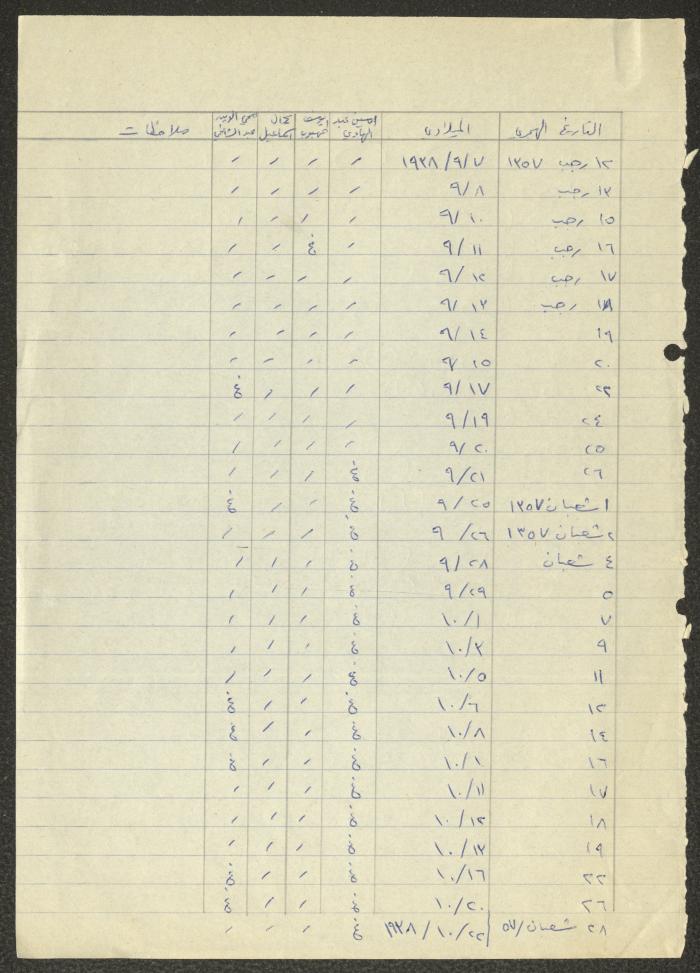 التاريخ الهجري الميلادي امين عبد الهادي يوسف صهيون كمال اسماعيل محي الدين عبد الشافي ملاحظات
١٢ رجب ١٣٥٧ ١٩٣٨/٩/٧ / / / /
١٣ رجب ٩/٨ / / / /
١٥ رجب ٩/١٠ / / / /
١٦ رجب ٩/١١ / غ / /
١٧ رجب ٩/١٢ / / / /
١٨ رجب ٩/١٣ / / / /
١٩ ٩/١٤ / / / /
٢٠ ٩/١٥ / / / /
٢٢ ٩/١٧ / / / غ
٢٤ ٩/١٩ / / / /
٢٥ ٩/٢٠ / / / /
٢٦ ٩/٢١ غ / / /
١ شعبان ١٣٥٧ ٩/٢٥ غ / / غ
٢ شعبان ١٣٥٧ ٩/٢٦ غ / / /
٤ شعبان ٩/٢٨ غ / / /
٥ ٩/٢٩ غ / / /
٧ ١٠/١ غ / / /
٩ ١٠/٣ غ / / /
١١ ١٠/٥ غ / / /
١٢ ١٠/٦ غ / / غ
١٤ ١٠/٨ غ / / غ
١٦ ١٠/١٠ غ / / غ
١٧ ١٠/١١ غ / / /
١٨ ١٠/١٢ غ / / /
١٩ ١٠/١٣ غ / / /
٢٢ ١٠/١٦ غ / / غ
٢٦ ١٠/٢٠ غ / / غ
٢٨ شعبان/٥٧ ١٩٣٨/١٠/٢٢ غ / / /